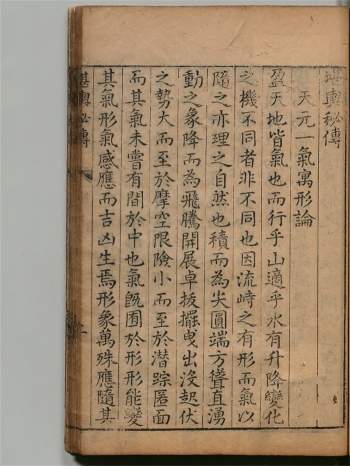 堪輿秘傳
天元一氣寓形論
盈天地皆氣也而行乎山適乎水有升降變化
之機不同者非不同也因流峙之有形而氣以
隨之亦理之自然也積而為尖圓端方聳直湧
動之象降而為飛騰開展卓拔擺曳出沒起伏
之勢大而至於摩空限險小而至於潛踪匿面
而其氣未嘗有間於中也氣既囿於形形能變
其氣形氣感應而吉凶生焉形象萬殊應隨其
堪輿秘傳